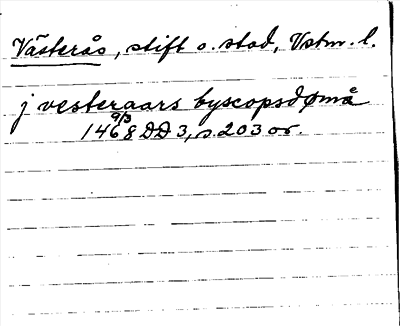 Västerås, stift o. stad, Vstm. l.
j vesteraars byscopsdømå
1468 9/3 DD 3, s. 203 or.